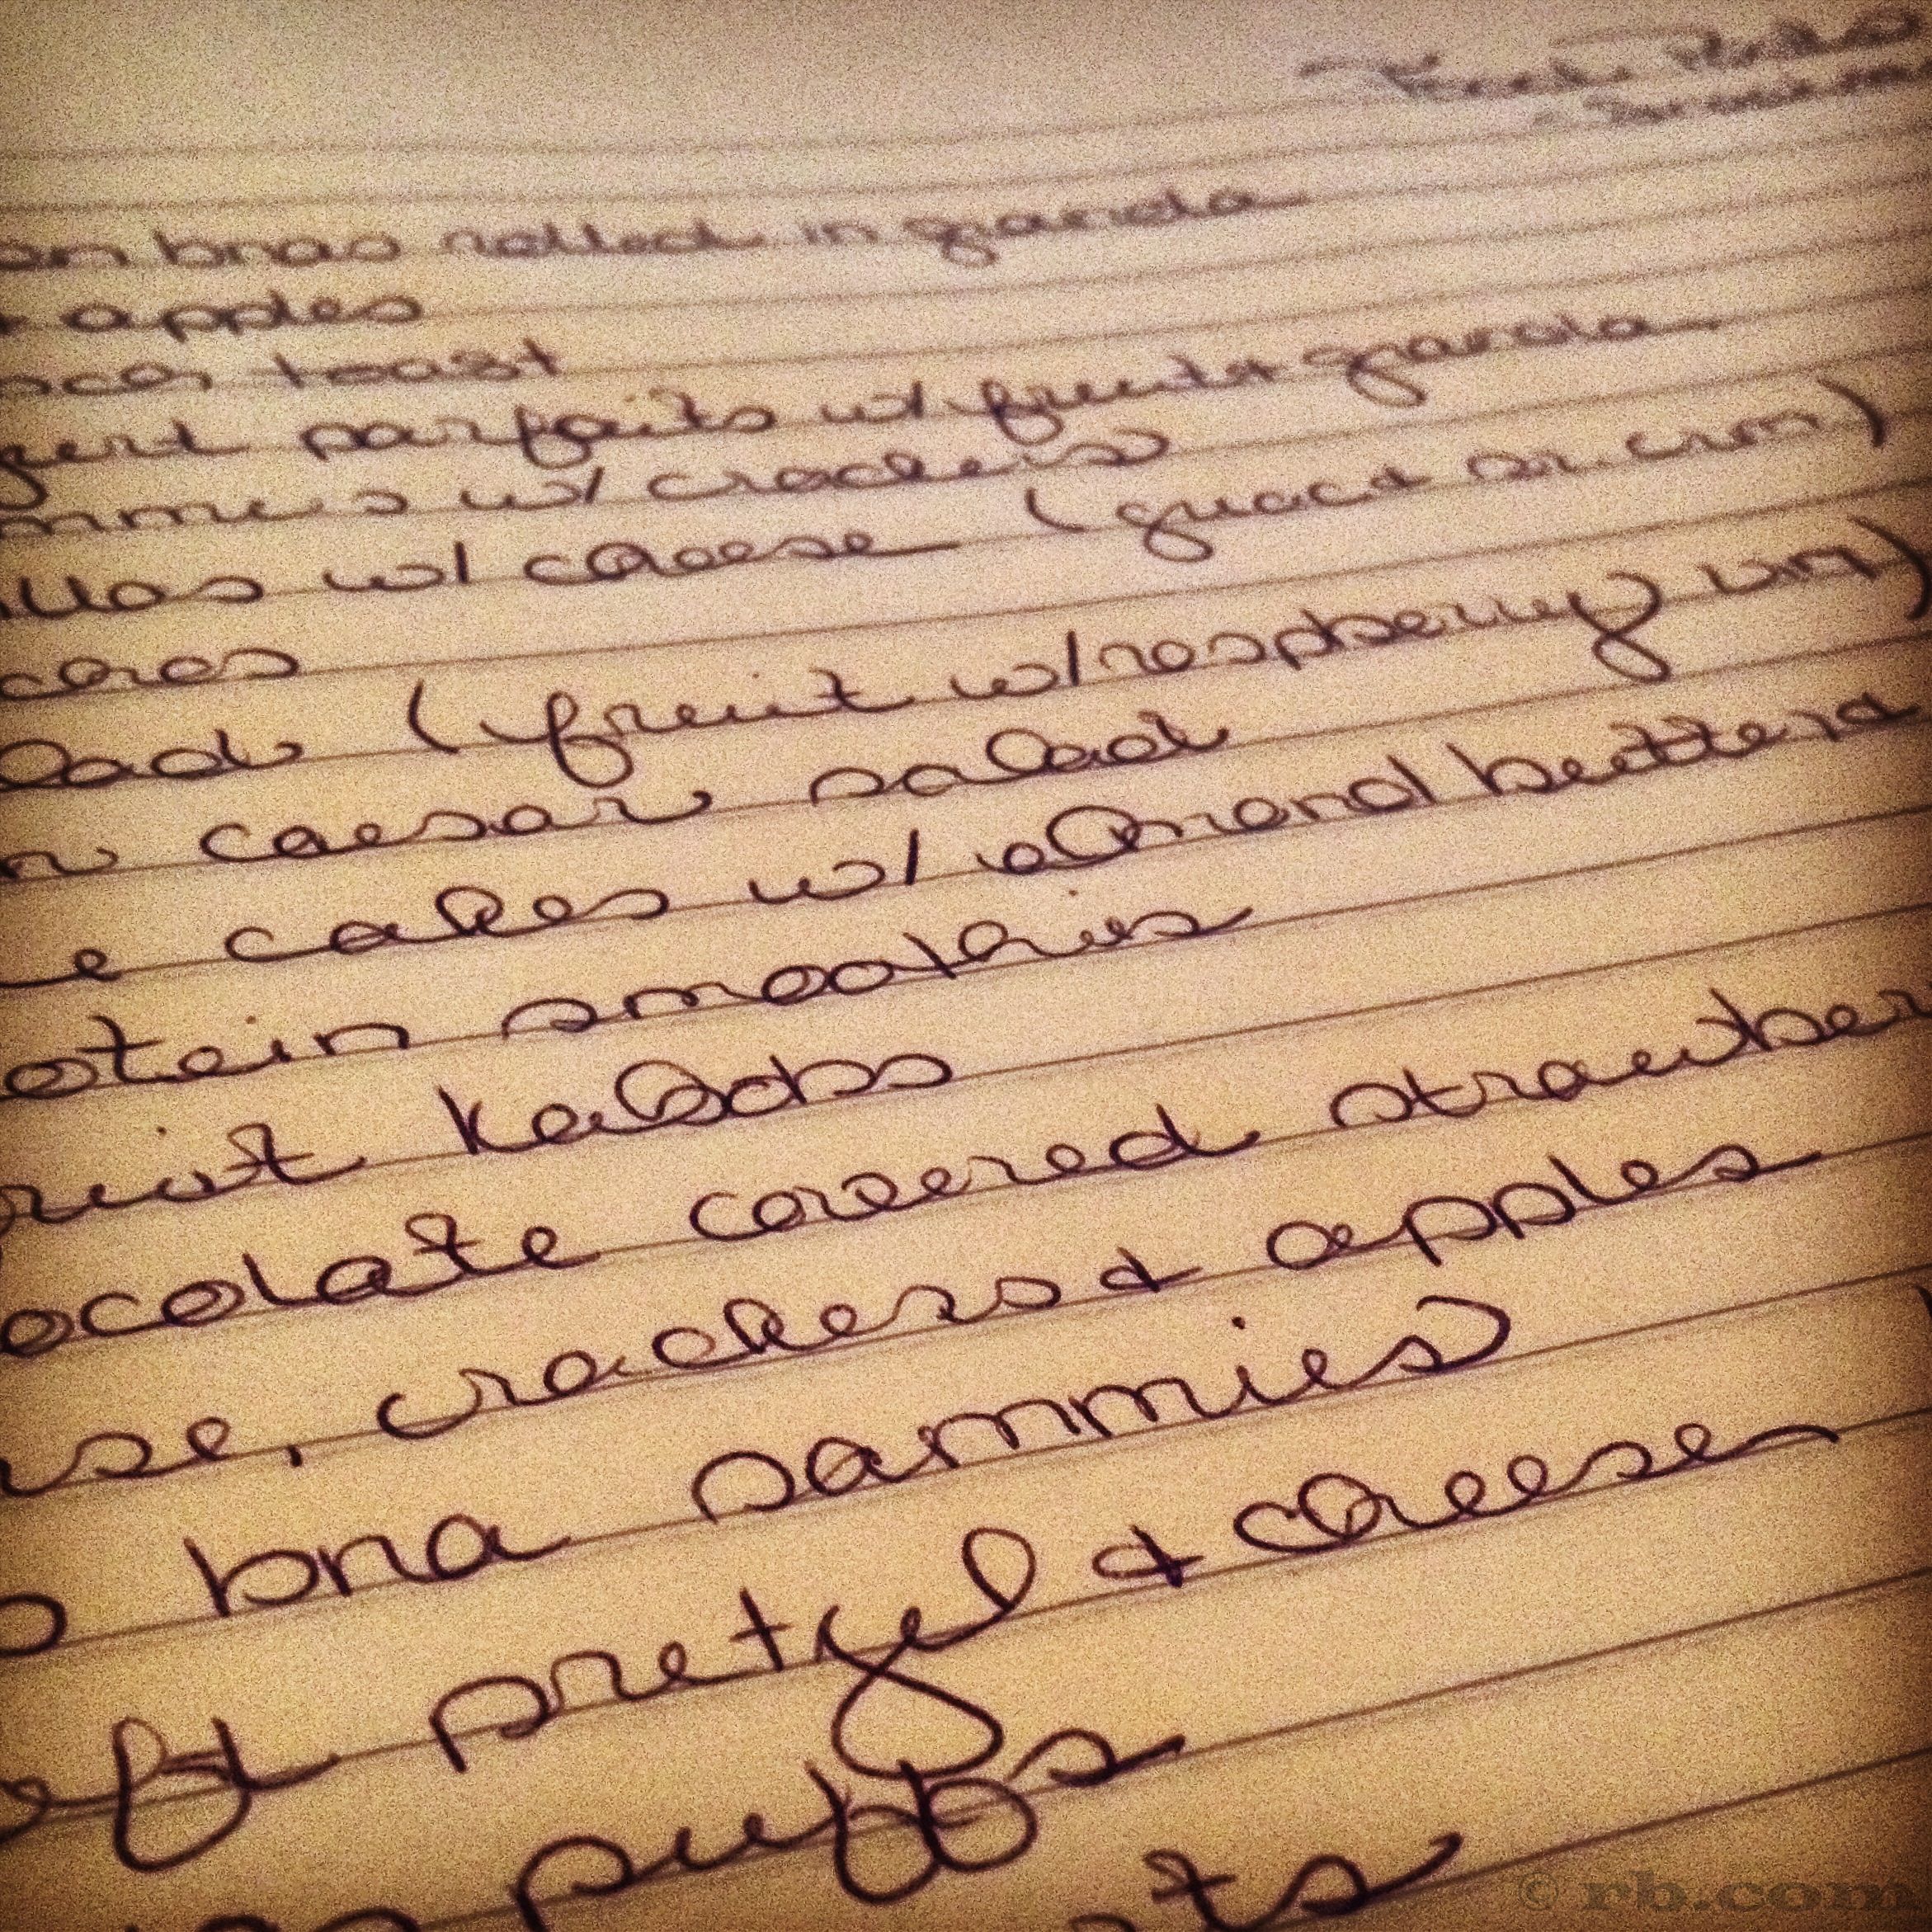 bnas rolled in granola
apples
toast
parfaits w/ fruit & granola
w/ crackers
w/ cheese (guac & sr. crm)
(fruit w/ raspberry vin)
caesar salad
cakes w/ almond butter
otein smoothies
ruit kabobs
ocolate covered strawber
se, crackers & apples
bna sammies
oft pretzel & cheese
puffs
ts
© rb.com